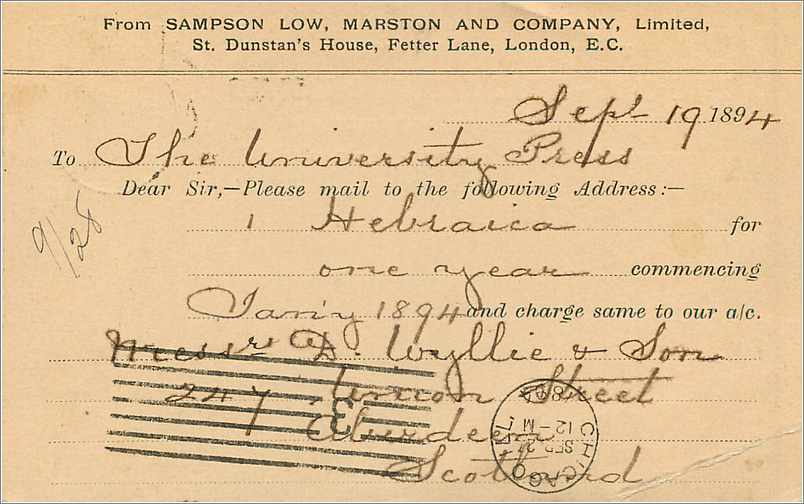 From SAMPSON LOW, MARSTON AND COMPANY, Limited,
St. Dunstan's House, Fetter Lane, London, E.C.
Sept 19 1894
To The University Press
Dear Sir,—Please mail to the following Address:—
9/28
1 Hebraica for
one year commencing
Jan'y 1894 and charge same to our a/c.
Messrs D. Wyllie & Son
247 Union Street
Aberdeen
Scotland
CHICAGO
SEP 27
12-M